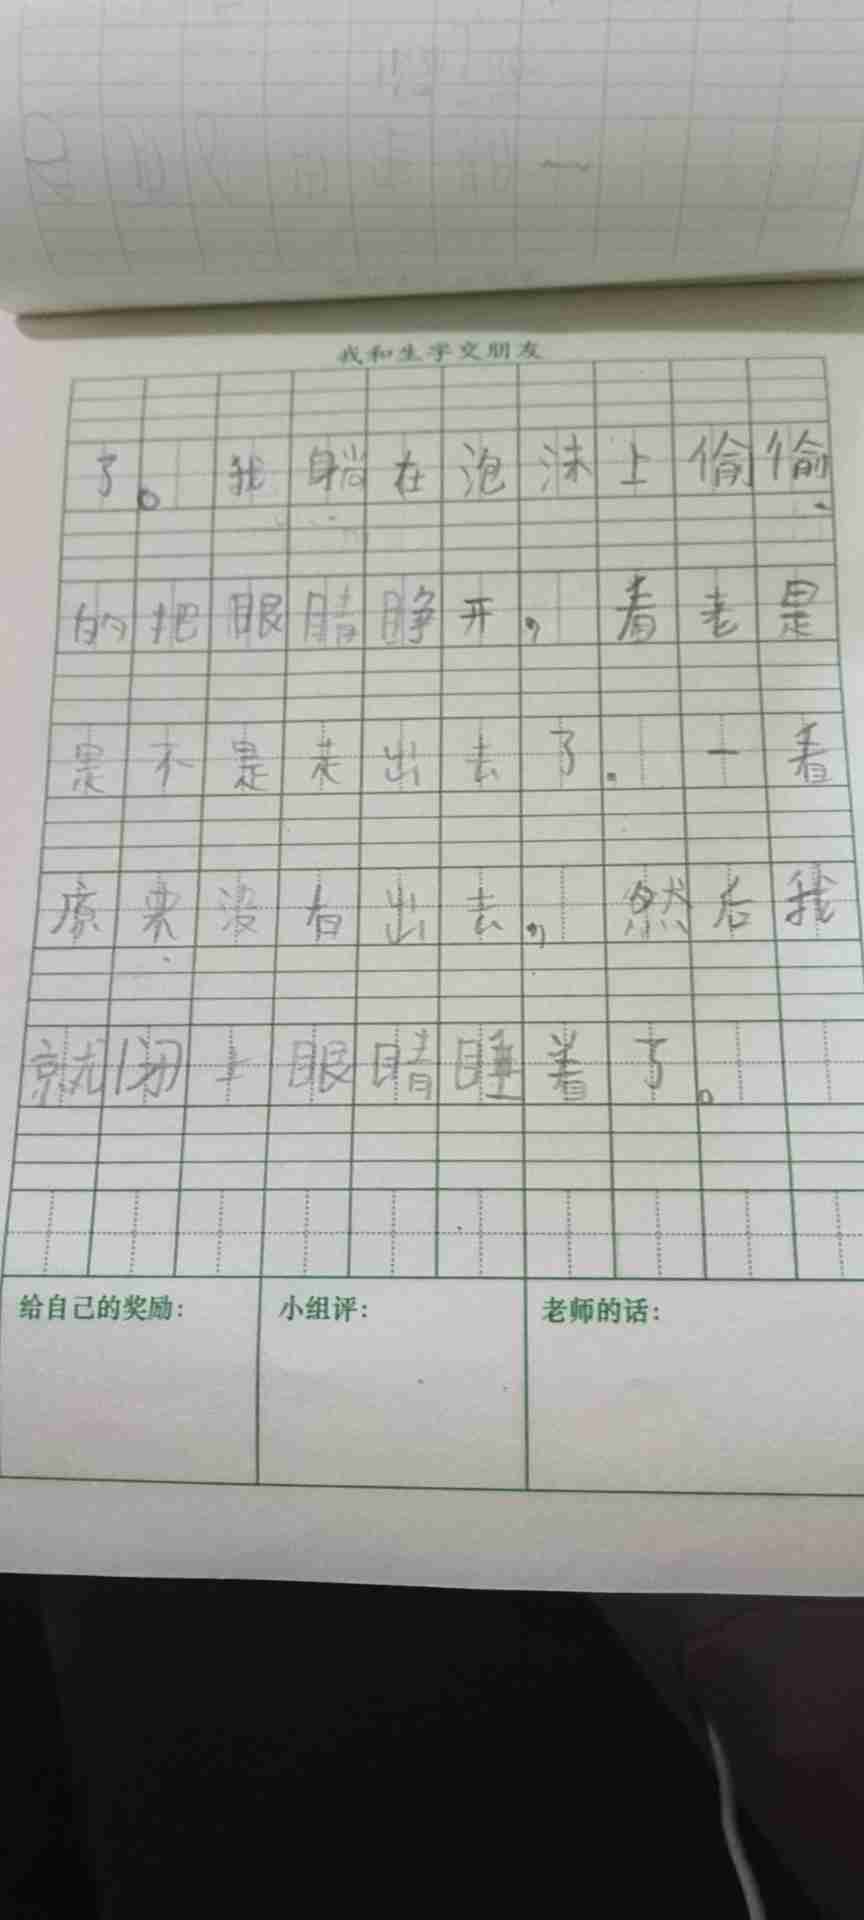 我和生字交朋友
了。我躺在泡沫上偷偷
的把眼睛睁开，看老是
是不是走出去了.一看
原来没有出去，然后我
就闭上眼睛睡着了。
给自己的奖励：
小组评：
老师的话：